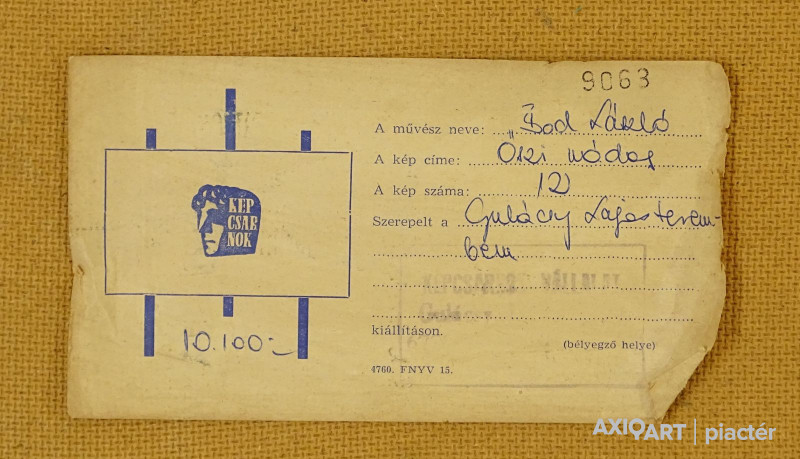 9063
A művész neve: „Bod László
A kép címe: Őszi nádas
A kép száma: 12)
Szerepelt a Gulácsy Lajos terem-
ben
kiállításon.
(bélyegző helye)
4760. FNYV 15.
KÉP
CSAR
NOK
10.100.-
KÉPCSARNOK VÁLLALAT
AXIOART | piactér